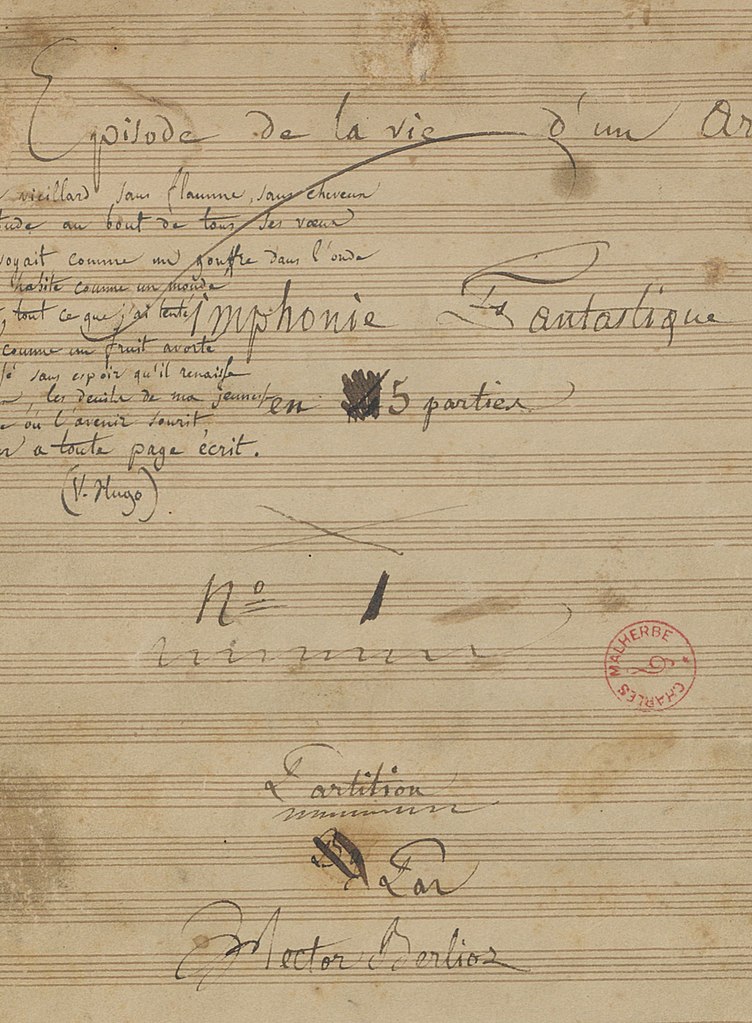 Episode de la vie d'un Ar
vieillard, sans flamme, sans cheveux
tude au bout de tous ses vœux
voyait comme un gouffre dans l'onde
habite comme un monde
, tout ce que j'ai tenté
Simphonie Fantastique
comme un fruit avorté
sé sans espoir qu'il renaisse
, les deuils de ma jeunesse
en 5 parties
e où l'avenir sourit,
ur a toute page écrit.
(V. Hugo)
Nº 1
CHARLES MALHERBE
Partition
Par
Hector Berlioz